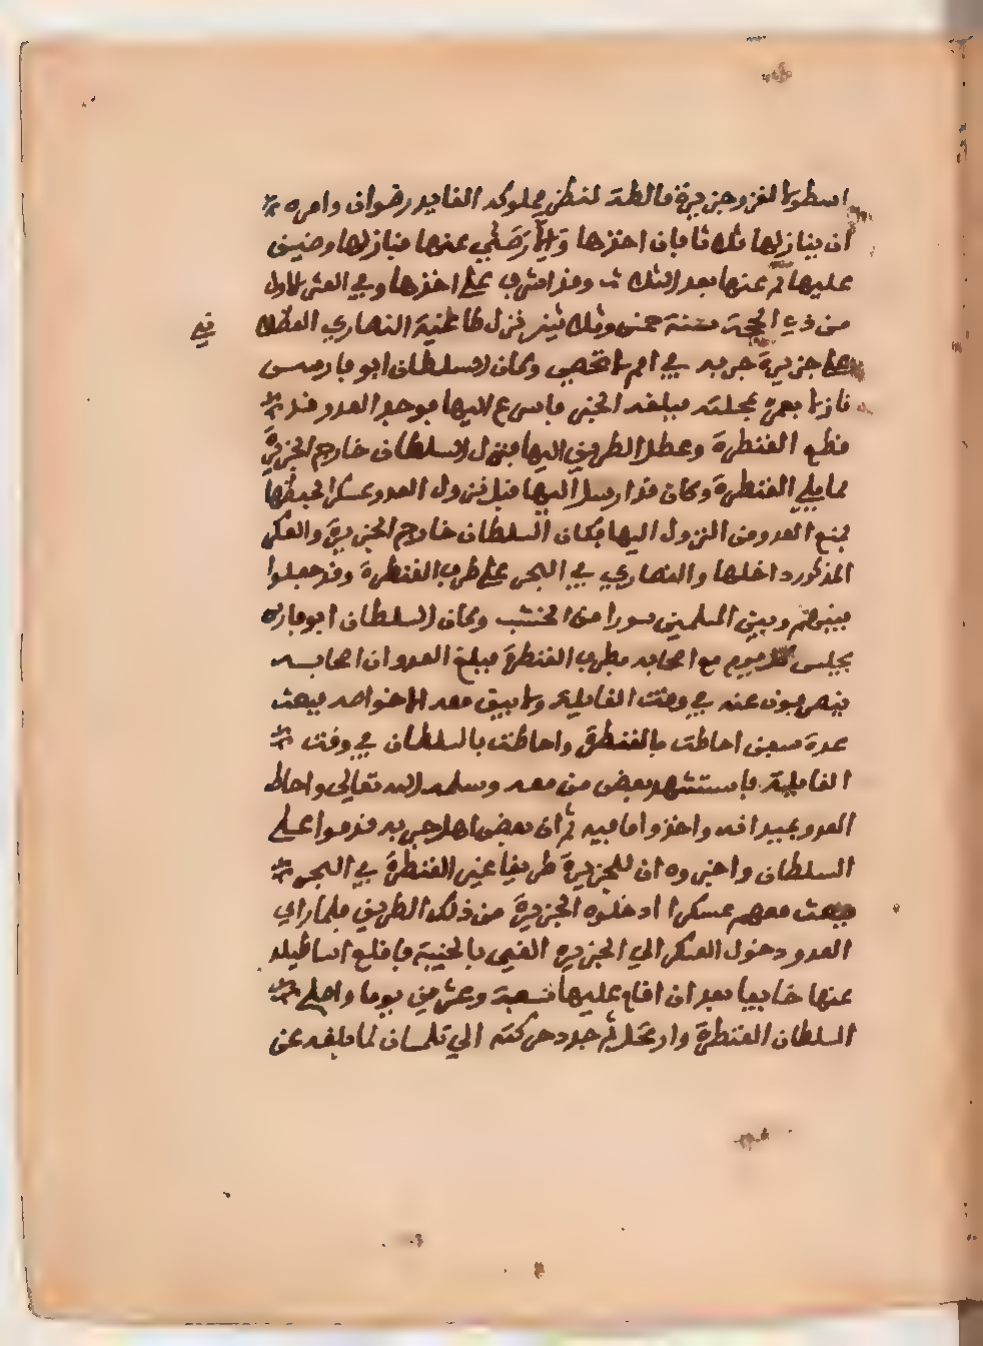 اسطولا لغزو جزيرة مالطة لنظر مملوكه القايد رضوان وامره
ان ينازلها ثلاثا فان اخذها والا رَحَل عنها فنازلها وضيق
عليها ثم عنها بعد الثلاث وقد اشرف على اخذها وفي العشر الاول
من ذي الحجة سنة خمس وثلاثين نزل طاغية النصارى
على جزيرة جربه في امم لا تحصى وكان السلطان ابو فارس
نازلا بعمرة بمحلته فبلغه الخبر فاسرع اليها فوجد العدو قد
قطع القنطرة وعطل الطريق اليها فنزل السلطان خارج الجزيرة
مما يلي القنطرة وكان قد ارسل اليها قبل نزول العدو عسكرا لحفظها
بمنع العدو من النزول اليها فكان السلطان خارج الجزيرة والعسكر
المذكور داخلها والنصارى في البحر على طرف القنطرة وقد جعلوا
بينهم وبين المسلمين سورا من الخشب وكان السلطان ابو فارس
يجلس كل يوم مع اصحابه بطرف القنطرة فبلغ العدو ان اصحابه
ينصرفون عنه في وقت القايلة ولا يبقى معه الا خواصه فبعث
عدة سفن احاطت بالقنطرة واحاطت بالسلطان في وقت
القايلة فاستشهد بعض من معه وسلمه الله تعالى واحاط
العدو بميدانه واخذوا ما فيه ثم ان بعض اهل جربه قدموا على
السلطان واخبروه ان للجزيرة طريقا غير القنطرة في البحر
فبعث معهم عسكرا ادخلوه الجزيرة من ذلك الطريق فلما راى
العدو دخول العسكر الى الجزيره القى بالخيبة فاقلع اساطيله
عنها خايبا بعد ان اقام عليها سبعة وعشرين يوما واصلح
السلطان القنطرة وارتحل ثم جدد حركته الى تلمسان لما بلغه عن